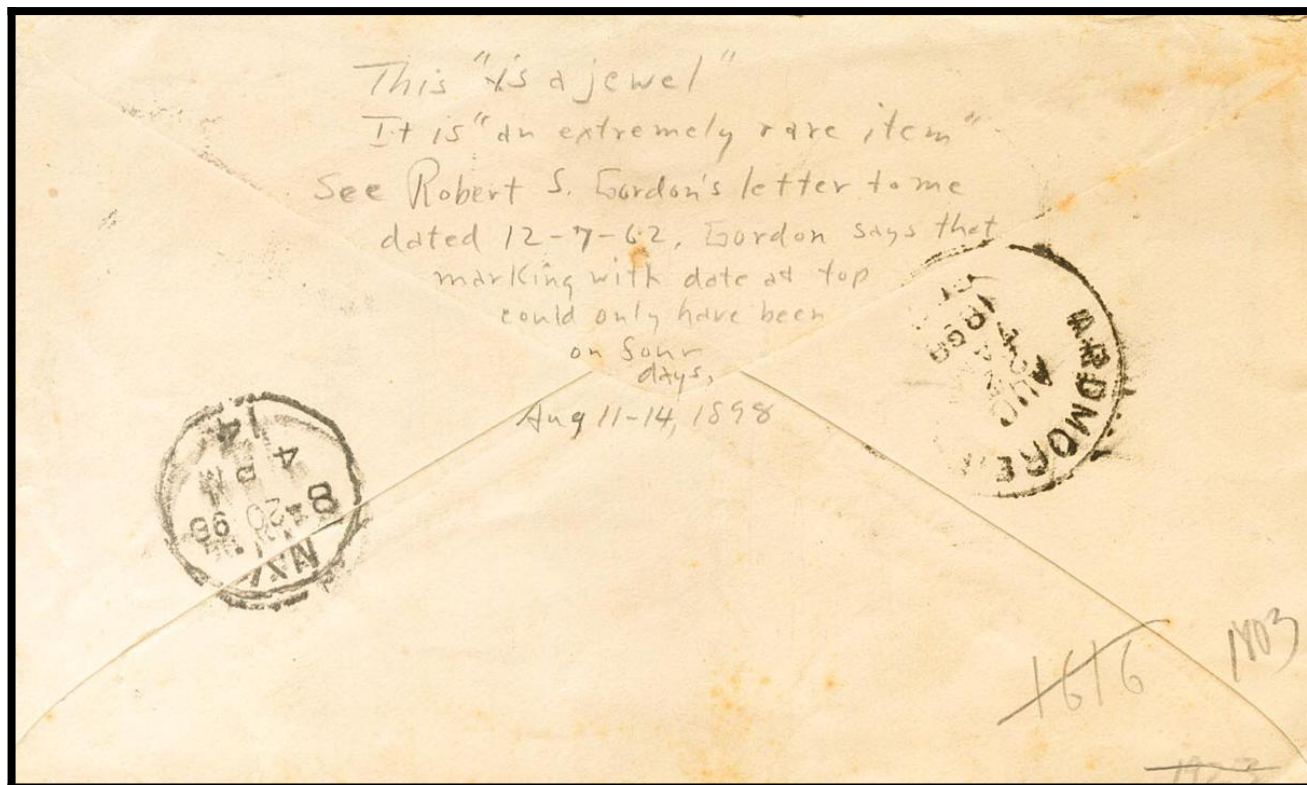 This "is a jewel"
It is "an extremely rare item"
See Robert S. Gordon's letter to me
dated 12-7-62, Gordon says that
marking with date at top
could only have been
on four
days,
Aug 11-14, 1898
ARDMORE
AUG
1898
N.Y.
8 20 98
4 PM
14
1616
1803